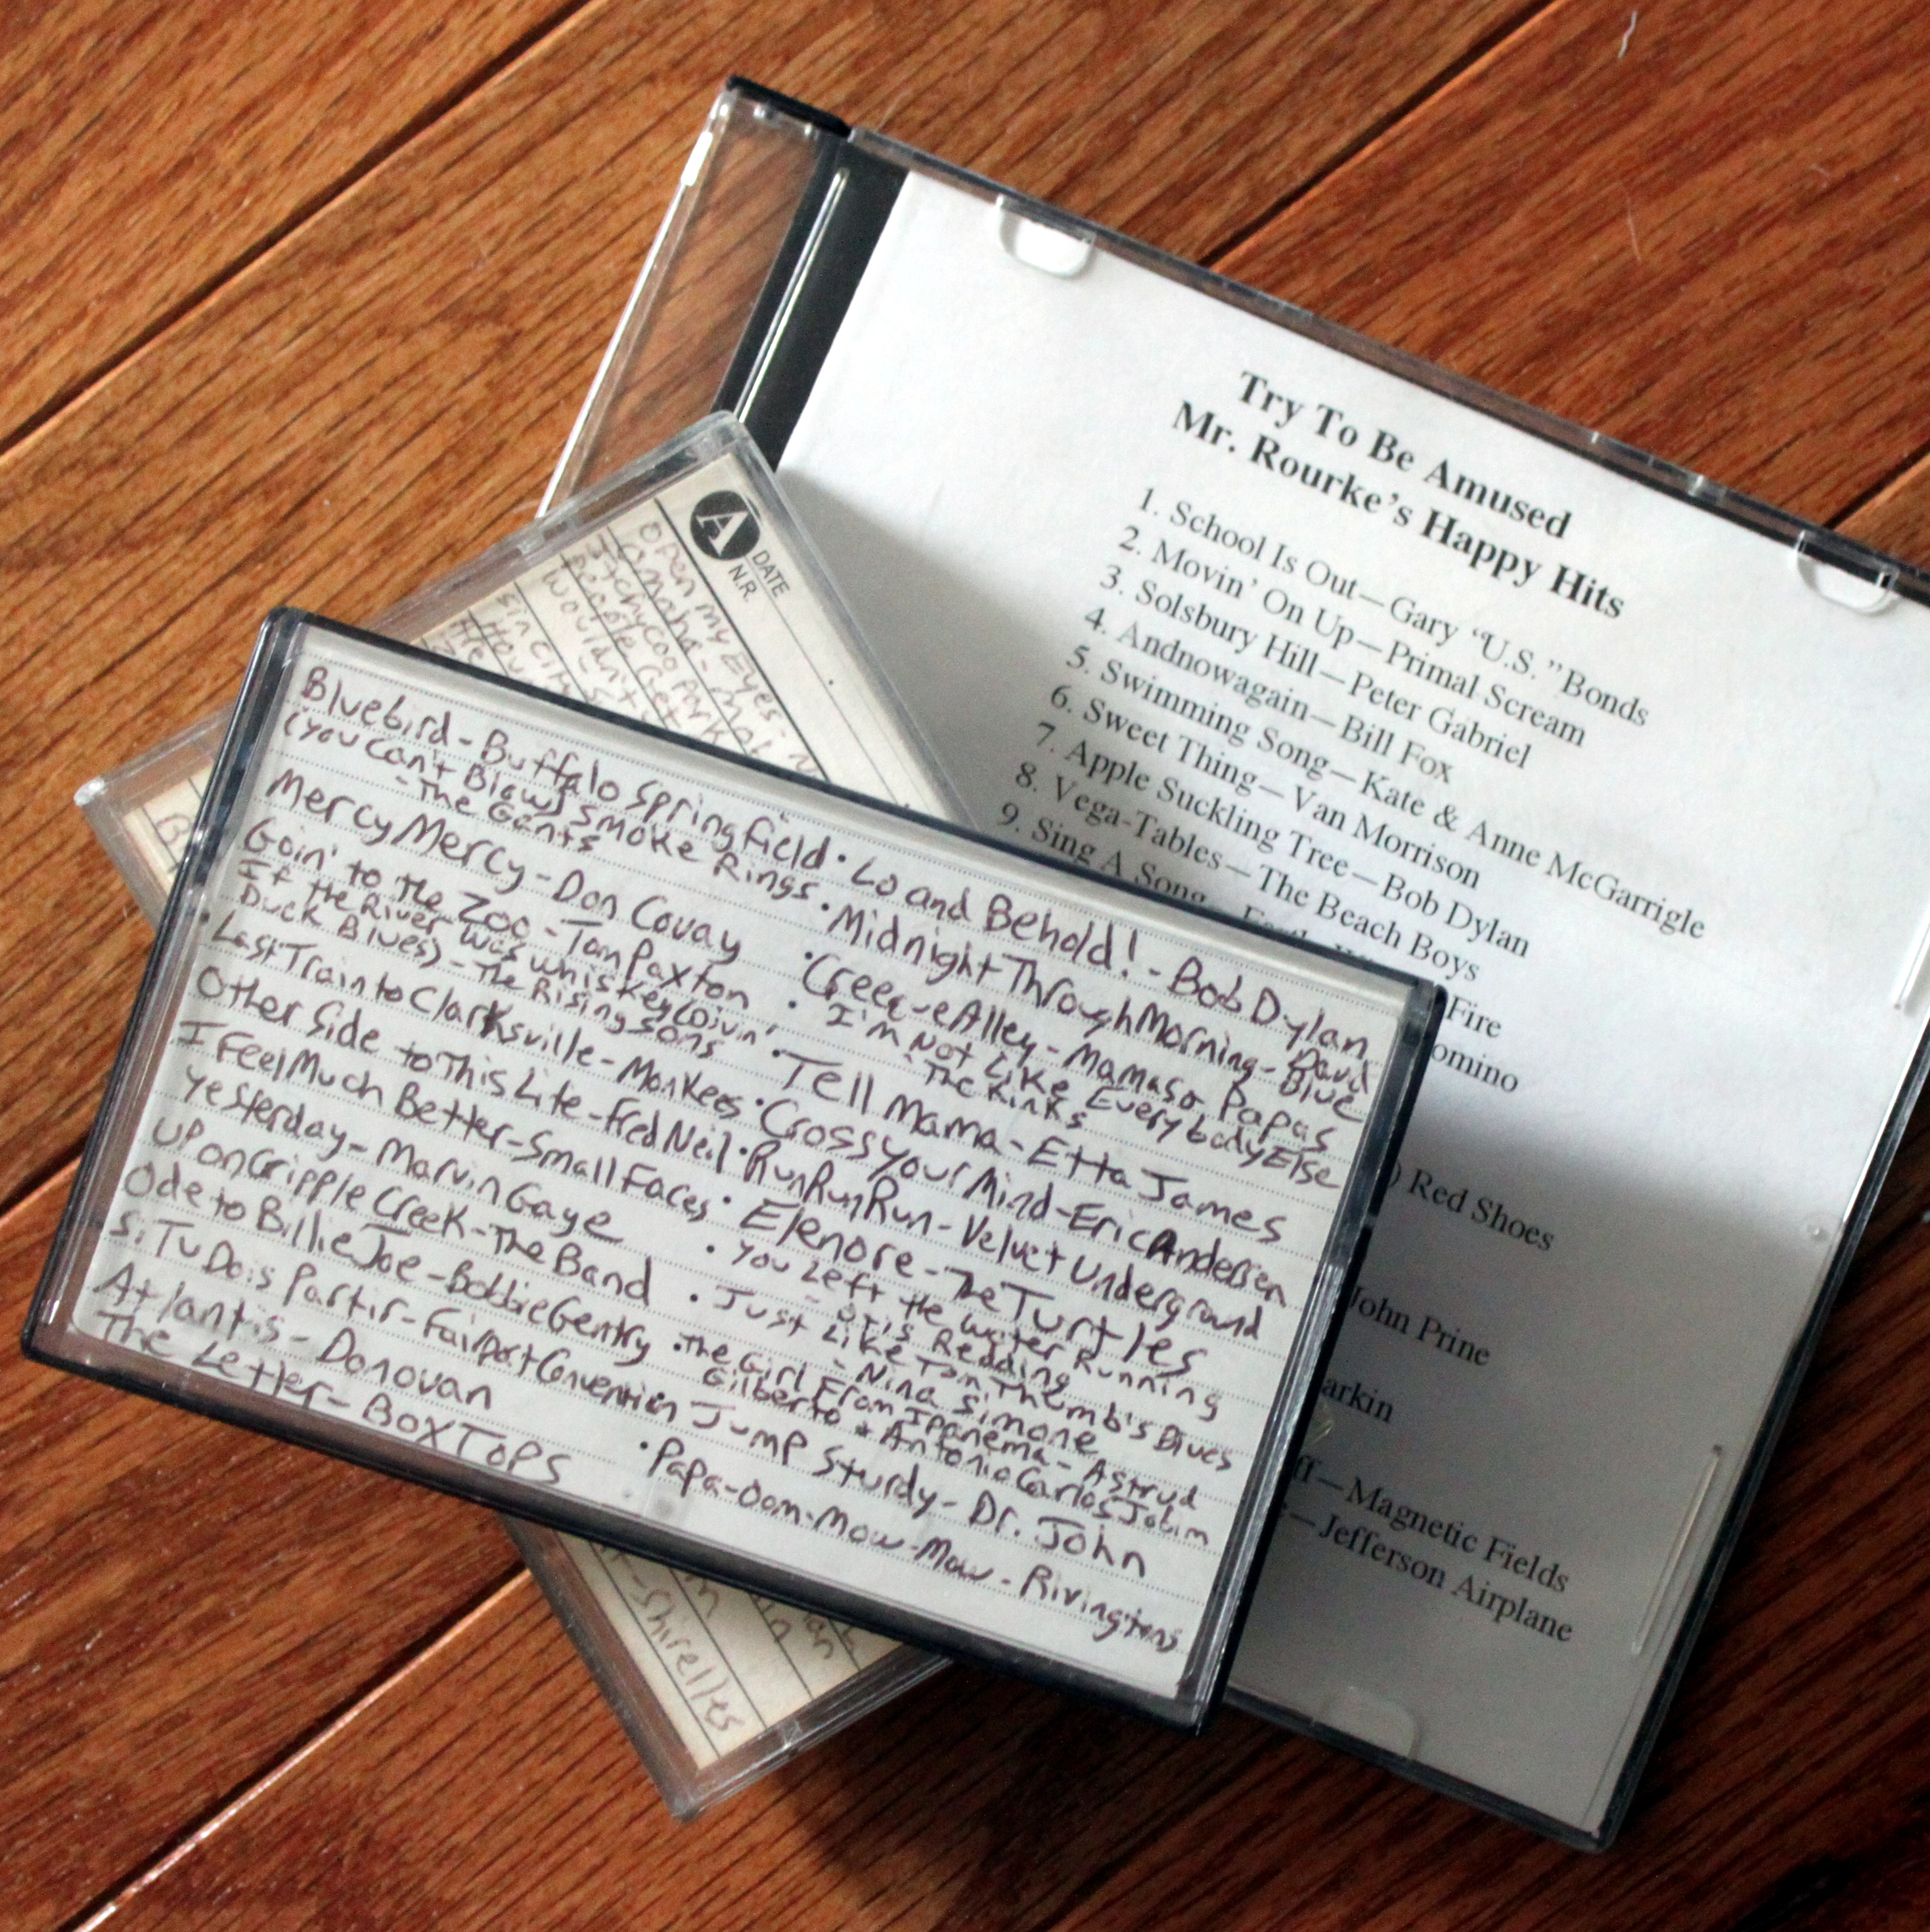 Try To Be Amused
Mr. Rourke's Happy Hits
1. School Is Out—Gary "U.S." Bonds
2. Movin' On Up—Primal Scream
3. Solsbury Hill—Peter Gabriel
4. Andnowagain—Bill Fox
5. Swimming Song—Kate & Anne McGarrigle
6. Sweet Thing—Van Morrison
7. Apple Suckling Tree—Bob Dylan
8. Vega-Tables—The Beach Boys
9. Sing A Song—Earth
Fire
omino
) Red Shoes
John Prine
arkin
ff—Magnetic Fields
—Jefferson Airplane
A DATE
N.R.
Open my Eyes
Omaha - 
Itchycoo Park
People Get
Wouldn't
Sin City
Shirelles
Bluebird - Buffalo Springfield · Lo and Behold! - Bob Dylan
(You Can't Blow) Smoke Rings · Midnight Through Morning - David
- The Gants
Blue
Mercy Mercy - Don Covay · Creeque Alley - Mamas & Papas
Goin' to the Zoo - Tom Paxton · I'm Not Like Everybody Else
- The Kinks
If the River Was Whiskey (Divin'
Duck Blues) - The Rising Sons · Tell Mama - Etta James
Last Train to Clarksville - Monkees · Cross Your Mind - Eric Andersen
Other Side to This Life - Fred Neil · Run Run Run - Velvet Underground
I Feel Much Better - Small Faces · Elenore - The Turtles
Yesterday - Marvin Gaye · You Left the Water Running
- Otis Redding
Up on Cripple Creek - The Band · Just Like Tom Thumb's Blues
- Nina Simone
Ode to Billie Joe - Bobbie Gentry · The Girl From Ipanema - Astrud
Gilberto & Antonio Carlos Jobim
Si Tu Dois Partir - Fairport Convention Jump Sturdy - Dr. John
Atlantis - Donovan · Papa-Oom-Mow-Mow - Rivingtons
The Letter - Box Tops